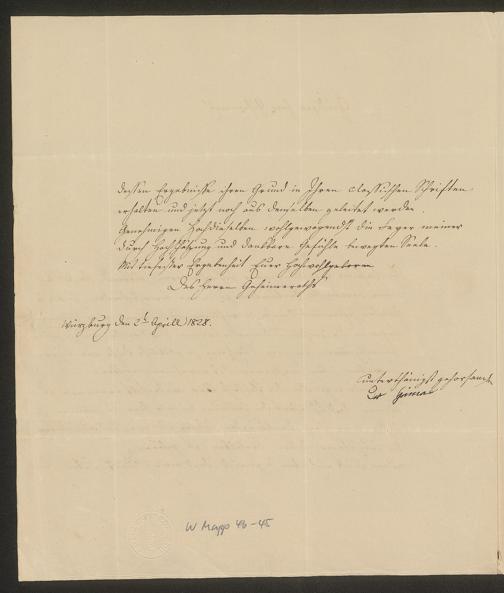 dessen Ergebnisse ihren Grund in Ihren classischen Schriften
erhalten und jetzt noch aus denselben geleitet werden.
Genehmigen Hochdieselben wohlgewogendst die Reger meiner
durch Hochschätzung und dankbare Gefühle bewegten Seele.
Mit tiefester Ergebenheit Euer Hochwohlgeboren
Des Herrn Geheimeraths
Würzburg den 2t Aprill 1828.
unterthänigst gehorsamst
W Mapp 46-45